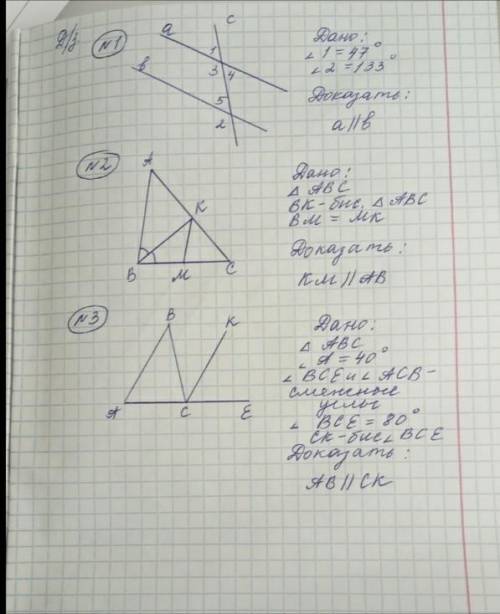 Д/з
№1
a
c
Дано:
∠1 = 47°
∠2 = 133°
Доказать:
a || b
b
1
3 4
5
2
№2
A
K
B
M
C
Дано:
△ ABC
BK - бис. △ ABC
BM = MK
Доказать:
KM || AB
№3
B
K
A
C
E
Дано:
△ ABC
∠A = 40°
∠BCE и ∠ACB -
смежные
углы
∠BCE = 80°
CK - бис ∠BCE
Доказать:
AB || CK